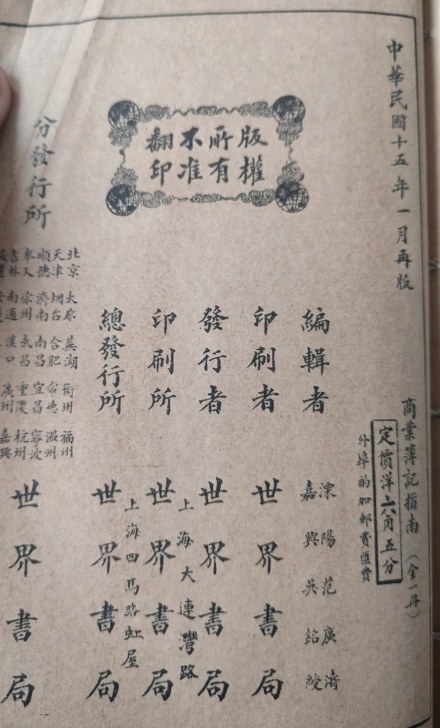 中華民國十五年一月再版
商業簿記指南（全一冊）
定價洋六角五分
外埠酌加郵費匯費
版權所有
不准翻印
編輯者
溧陽范廣濟
嘉興吳銘綬
印刷者
世界書局
發行者
世界書局
印刷所
上海大連灣路
世界書局
總發行所
上海四馬路虹屋
世界書局
分發行所
北京 太原 蕪湖 衢州 福州
天津 烟台 合肥 常德 溫州
順德 濟南 南昌 宜昌 寧波
奉天 徐州 武昌 重慶 杭州
吉林 南通 漢口 廣州 嘉興
世界書局